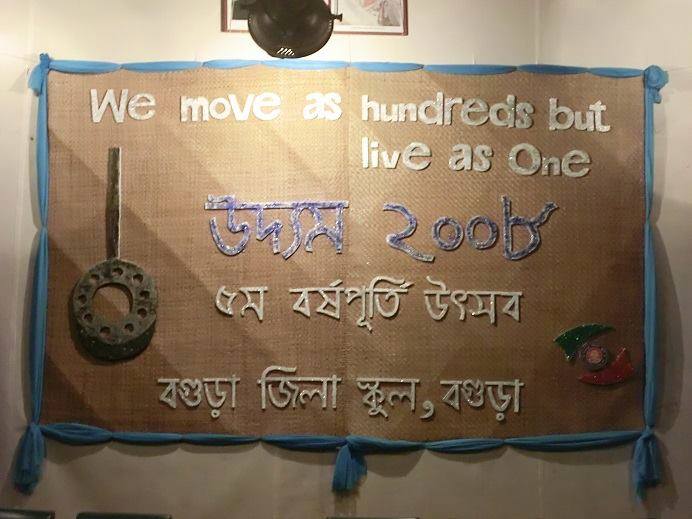 We move as hundreds but
live as One
উদ্যম ২০০৮
৫ম বর্ষপূর্তি উৎসব
বগুড়া জিলা স্কুল, বগুড়া